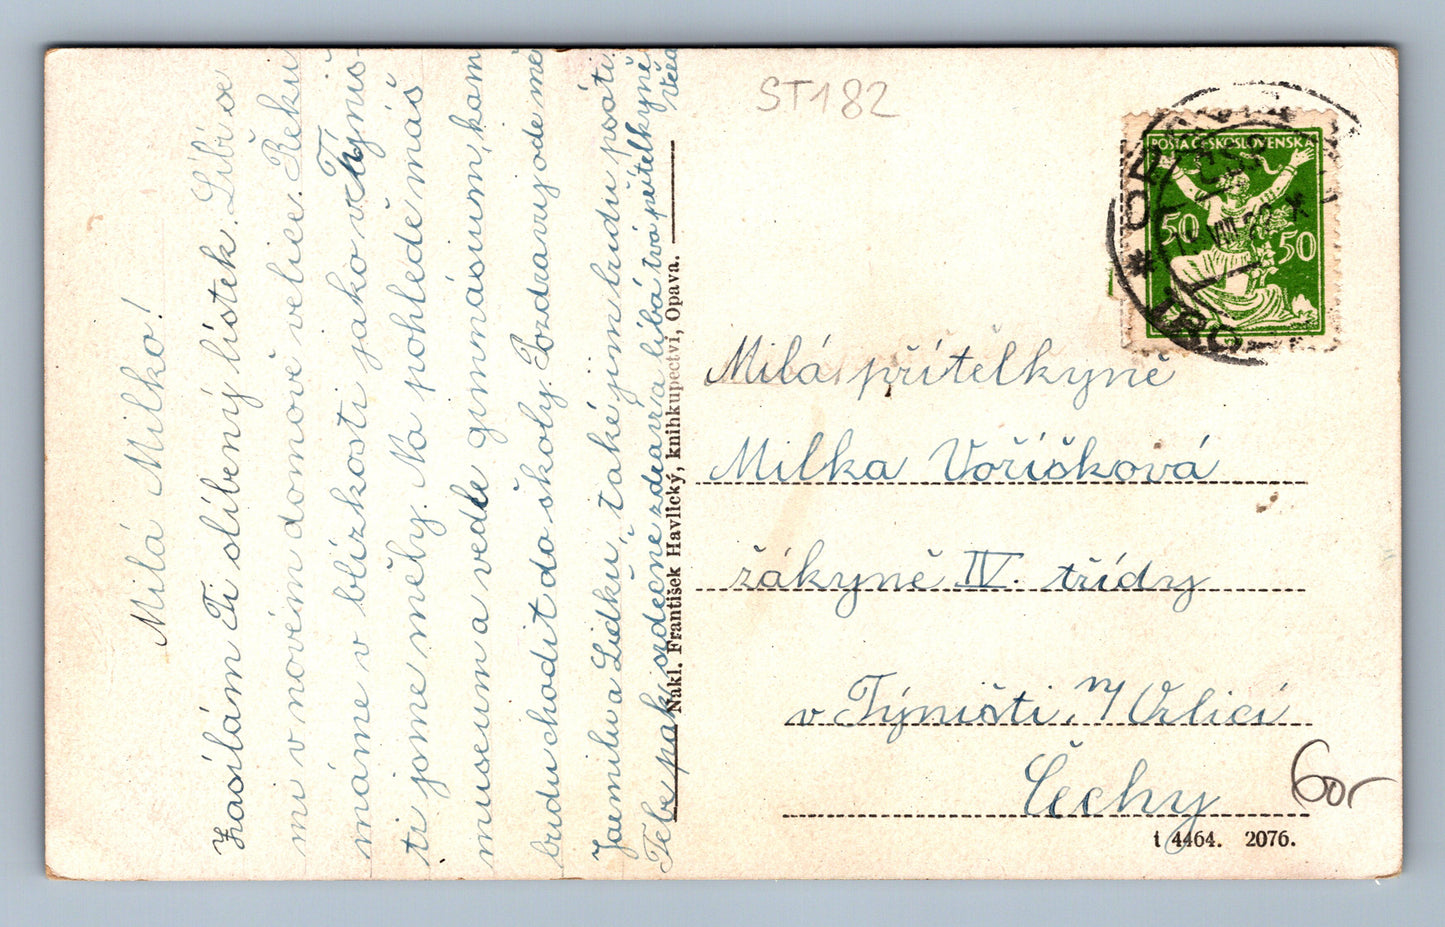 Milá Milko!
Zasílám Ti slíbený lístek. Líbí se
mi v novém domově velice. Řeku
máme v blízkosti jako v Týniš-
ti jsme měly. Na pohledě máš
museum a vedle gimnásium, kam
budu chodit do školy. Pozdravuj ode mě
Jarmilu a Lidku, také jim budu psáti.
Tebe pak srdečně zdraví a líbá tvá přítelkyně
Věra
Nakl. František Havlíčký, knihkupectví, Opava.
ST182
POŠTA ČESKOSLOVENSKÁ
50 50
VIII 22
Milá přítelkyně
Milka Voříšková
žákyně IV. třídy
v Týništi n/Orlicí
Čechy
60,-
i 4464. 2076.